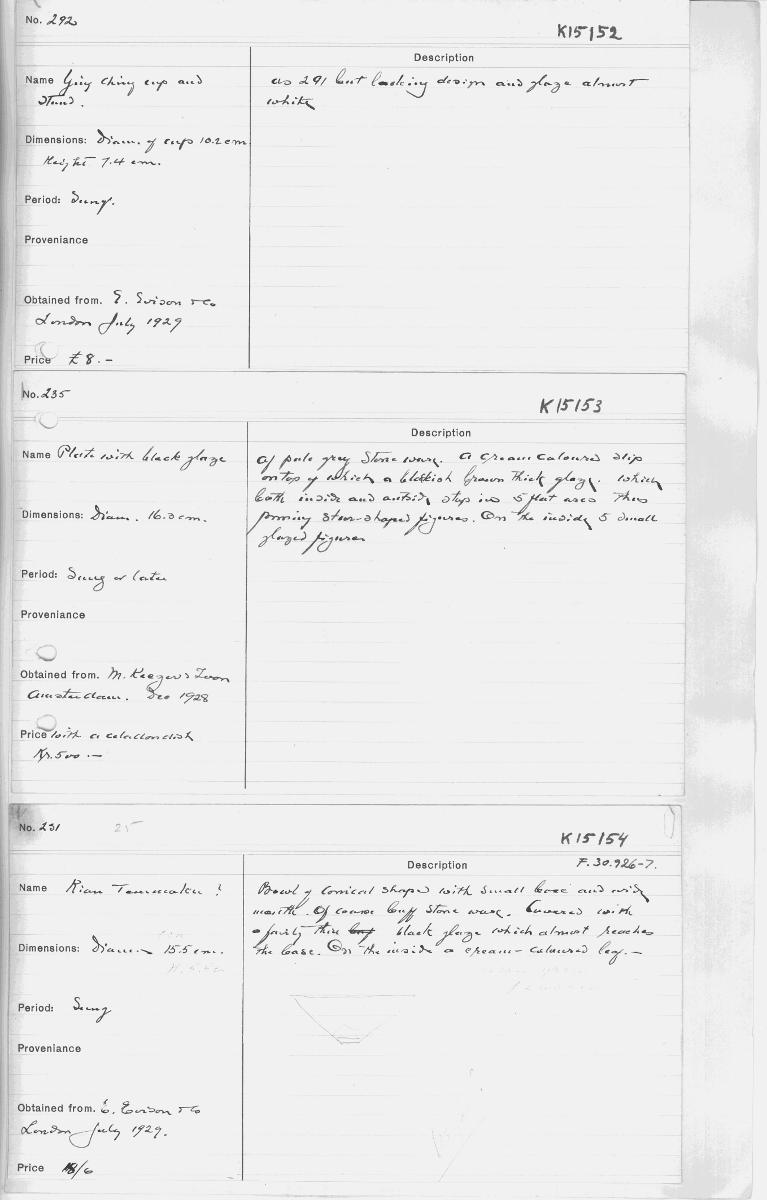 No. 292
K15152
Description
Name Ying Ching cup and
stand.
as 291 but lacking design and glaze almost
white
Dimensions: Diam. of cup 10.2 cm.
Height 7.4 cm.
Period: Sung.
Proveniance
Obtained from. E. Evison & Co
London July 1929
Price £ 8. -
No. 235
K15153
Description
Name Plate with black glaze
Of pale grey stone ware. A cream coloured slip
on top of which a blackish brown thick glaze. which
both inside and outside stop in 5 flat arcs thus
forming star-shaped figures. On the inside 5 small
glazed figures
Dimensions: Diam. 16. cm.
Period: Sung or later
Proveniance
Obtained from. M.
Amsterdam. Dec 1928
Price with a celadon dish
Kr. 500 . —
No. 231 25
K15154
Description
F.30.926-7.
Name Kian Temmoku ?
Bowl of conical shape with small base and wide
mouth. Of coarse buff stone ware. Covered with
a fairly thin black glaze which almost reaches
the base. On the inside a cream-coloured leaf. —
Dimensions: Diam. 15.5 cm.
Period: Sung
Proveniance
Obtained from. E. Evison & Co
London July 1929.
Price 18/6